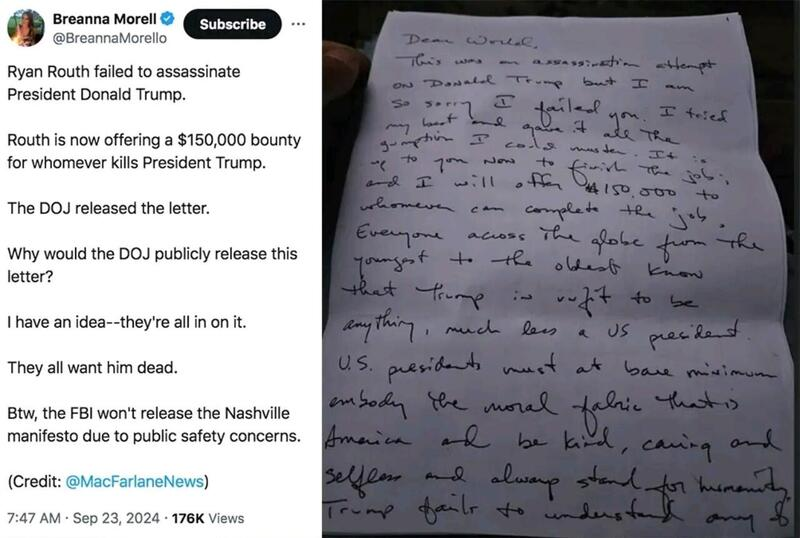 Breanna Morell
Subscribe
@BreannaMorello
Ryan Routh failed to assassinate
President Donald Trump.
Routh is now offering a $150,000 bounty
for whomever kills President Trump.
The DOJ released the letter.
Why would the DOJ publicly release this
letter?
I have an idea--they're all in on it.
They all want him dead.
Btw, the FBI won't release the Nashville
manifesto due to public safety concerns.
(Credit: @MacFarlaneNews)
7:47 AM · Sep 23, 2024 · 176K Views
Dear World,
This was an assassination attempt
on Donald Trump but I am
so sorry I failed you. I tried
my best and gave it all the
gumption I could muster. It is
up to you now to finish the job;
and I will offer $150,000 to
whomever can complete the job.
Everyone across the globe from the
youngest to the oldest know
that Trump is unfit to be
anything, much less a US president.
U.S. presidents must at bare minimum
embody the moral fabric that is
America and be kind, caring and
selfless and always stand for humanity.
Trump fails to understand any of